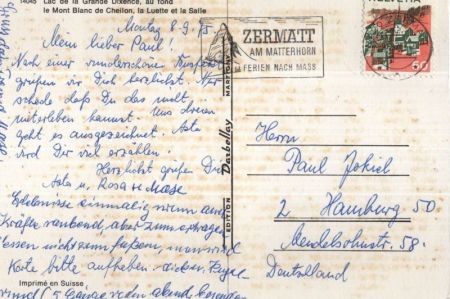 14045 Lac de la Grande Dixence, au fond
le Mont Blanc de Cheilon, la Luette et la Salle
Montag 8.9.75
Mein lieber Paul!
Nach einer wunderschönen
grüßen wir Dich herzlichst. Nur
schade daß Du das nicht
miterleben kannst. Uns dreien
geht es ausgezeichnet. Asta
wird Dir viel erzählen.
Herzlichst grüßen Dich
Asta u. Rosa
Erlebnisse einmalig wenn auch
Kräfte raubend, aber zum
essen nicht zum
Karte bitte aufheben
5 abend, besonders
Imprimé en Suisse
EDITION Darbellay MARTIGNY
ZERMATT
AM MATTERHORN
FERIEN NACH MASS
HELVETIA
50
Herrn
Paul Jokiel
2 Hamburg 50
Mendelsohnstr. 58.
Deutschland